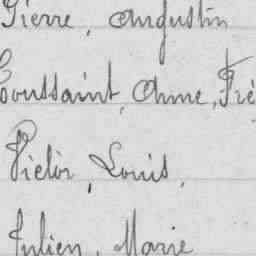 Pierre, Augustin
Toussaint, Aimé, Fré
Victor, Louis,
Julien, Marie